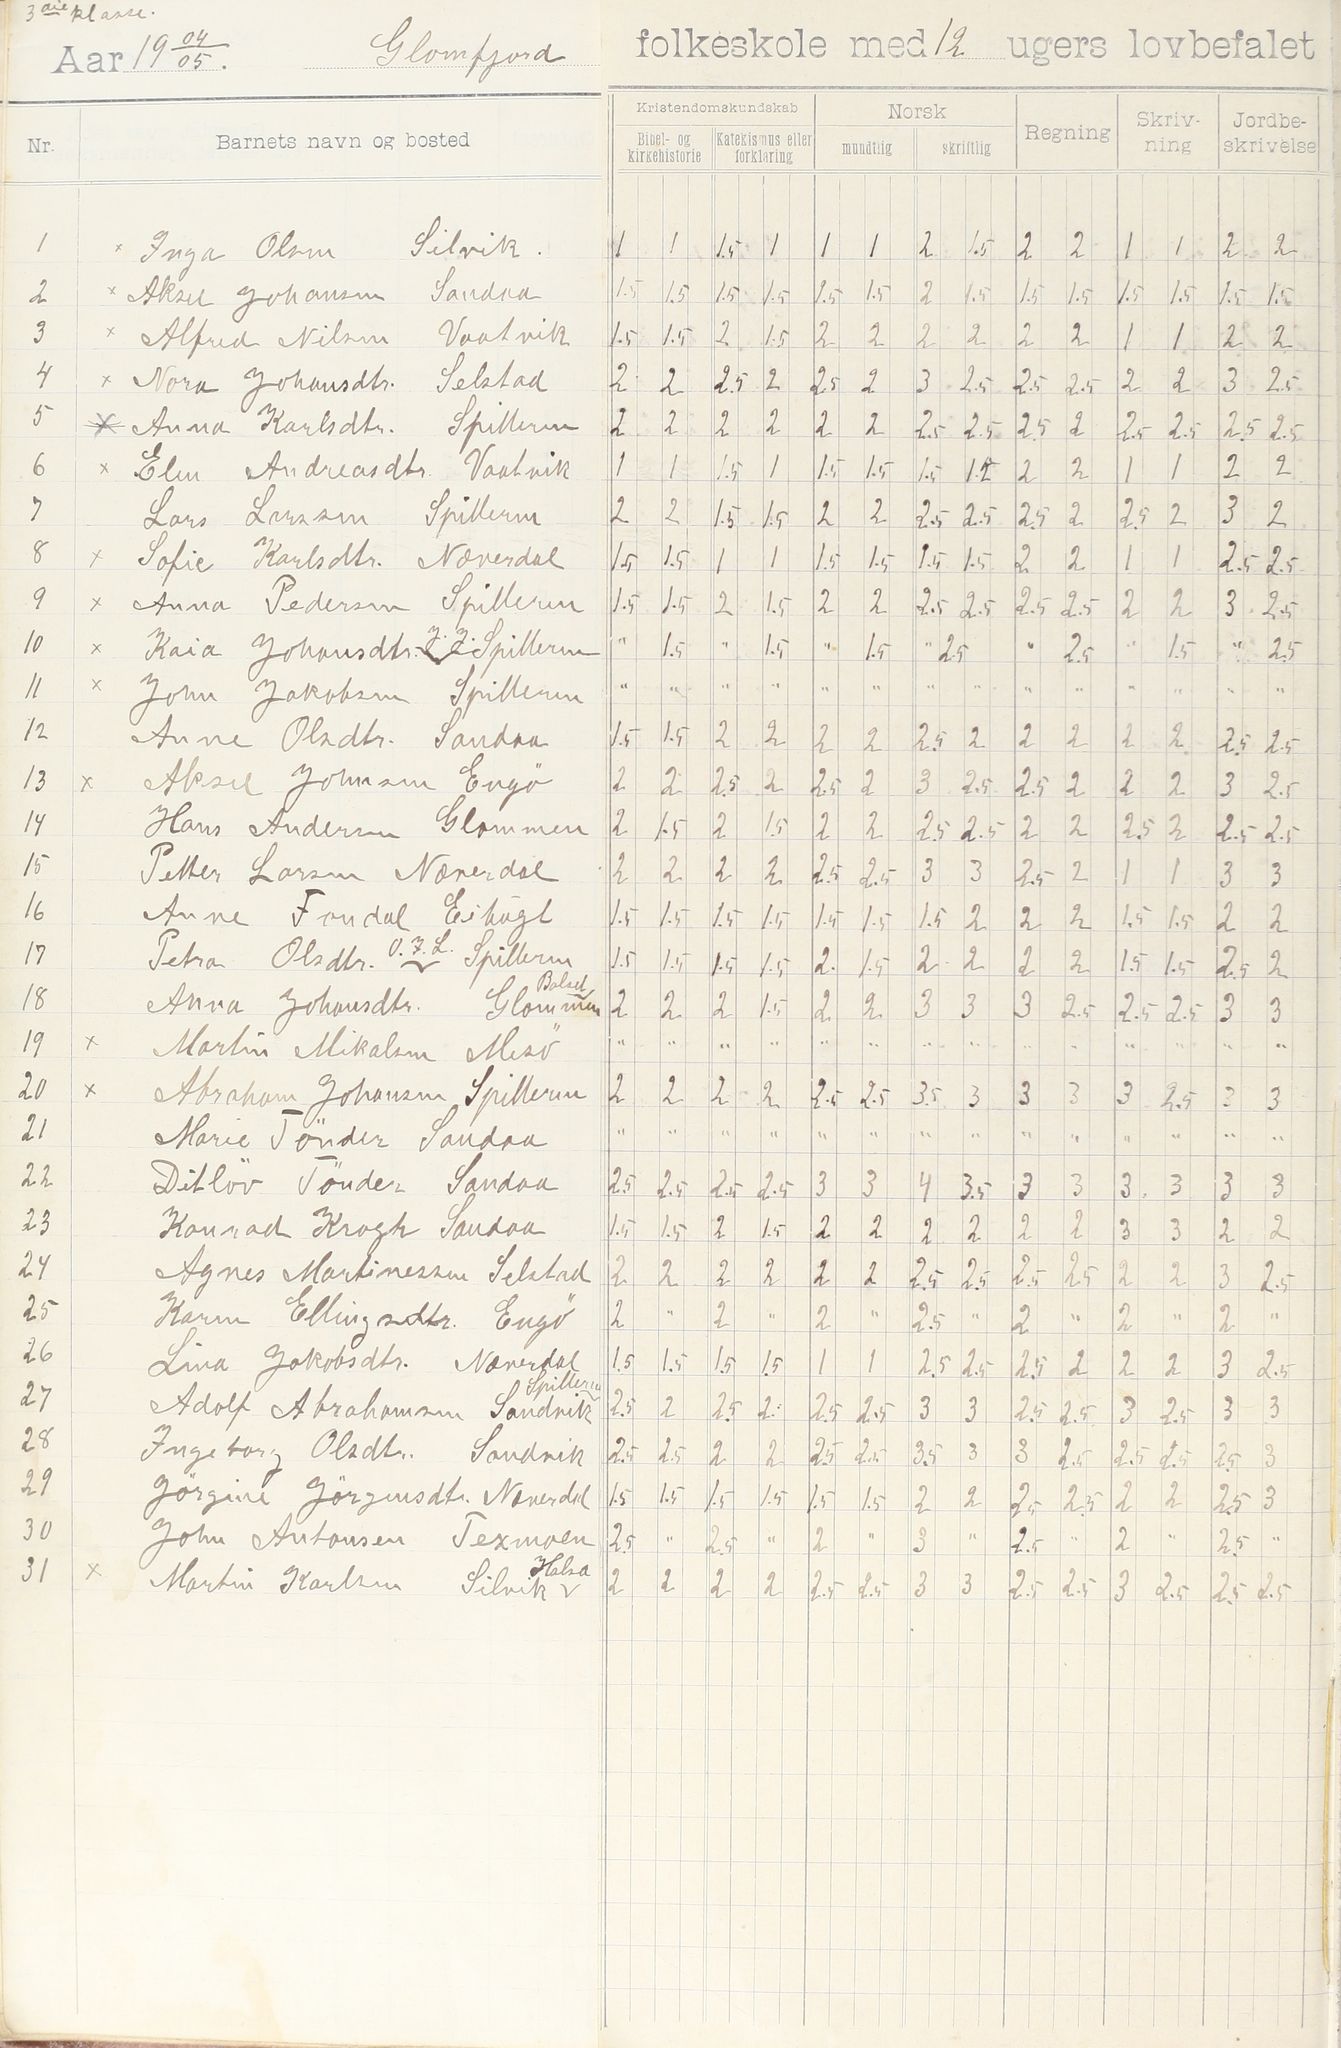 3die klasse.
Aar 19 04/05. Glomfjord folkeskole med 12 ugers lovbefalet
Nr. Barnets navn og bosted Kristendomskundskab Norsk Regning Skriv-ning Jordbe-skrivelse
Bibel- og kirkehistorie Katekismus eller forklaring mundtlig skriftlig
1 × Inga Olsen Silvik. 1 1 1.5 1 1 1 2 1.5 2 2 1 1 2 2
2 × Aksel Johansen Sandaa 1.5 1.5 1.5 1.5 1.5 1.5 2 1.5 1.5 1.5 1.5 1.5 1.5 1.5
3 × Alfred Nilsen Vaatvik 1.5 1.5 2 1.5 2 2 2 2 2 2 1 1 2 2
4 × Nora Johansdtr. Selstad 2 2 2.5 2 2.5 2 3 2.5 2.5 2.5 2 2 3 2.5
5 × Anna Karlsdtr. Spilleren 2 2 2 2 2 2 2.5 2.5 2.5 2 2.5 2.5 2.5 2.5
6 × Elen Andreasdtr. Vaatvik 1 1 1.5 1 1.5 1.5 1.5 2 2 1 1 2 2
7 Lars Larssen Spilleren 2 2 1.5 1.5 2 2 2.5 2.5 2.5 2 2.5 2 3 2
8 × Sofie Karlsdtr. Næverdal 1.5 1.5 1 1 1.5 1.5 1.5 1.5 2 2 1 1 2.5 2.5
9 × Anna Pedersen Spilleren 1.5 1.5 2 1.5 2 2 2.5 2.5 2.5 2.5 2 2 3 2.5
10 × Kaia Johansdtr. J. J. Spilleren " 1.5 " 1.5 " 1.5 " 2.5 " 2.5 " 1.5 " 2.5
11 × John Jakobsen Spilleren " " " " " " " " " " " " " "
12 Anne Olsdtr. Sandaa 1.5 1.5 2 2 2 2 2.5 2 2 2 2 2 2.5 2.5
13 × Aksel Johnsen Engö 2 2 2.5 2 2.5 2 3 2.5 2.5 2 2 2 3 2.5
14 Hans Andersen Glommen 2 1.5 2 1.5 2 2 2.5 2.5 2 2 2.5 2 2.5 2.5
15 Petter Larsen Næverdal 2 2 2 2 2.5 2.5 3 3 2.5 2 1 1 3 3
16 Anne Fondal 1.5 1.5 1.5 1.5 1.5 1.5 1.5 2 2 2 1.5 1.5 2 2
17 Petra Olsdtr. O. J. L. Spilleren 1.5 1.5 1.5 1.5 2. 1.5 2 2 2 2 1.5 1.5 2.5 2
18 Anna Johansdtr. Glommen 2 2 2 1.5 2 2 3 3 3 2.5 2.5 2.5 3 3
19 × Martin Mikalsen Mesö " " " " " " " " " " " " " "
20 × Abraham Johansen Spilleren 2 2 2 2 2.5 2.5 3.5 3 3 3 3 2.5 3 3
21 Marie Tönder Sandaa " " " " " " " " " " " " " "
22 Ditlöv Tönder Sandaa 2.5 2.5 2.5 2.5 3 3 4 3.5 3 3 3. 3 3 3
23 Konrad Krogh Sandaa 1.5 1.5 2 1.5 2 2 2 2 2 2 3 3 2 2
24 Agnes Martinessen Selstad 2 2 2 2 2 2 2.5 2.5 2.5 2.5 2 2 3 2.5
25 Karen Ellingsdtr. Engö 2 " 2 " 2 " 2.5 " 2 " 2 " 2 "
26 Lina Jakobsdtr. Næverdal 1.5 1.5 1.5 1.5 1 1 2.5 2.5 2.5 2 2 2 3 2.5
27 Adolf Abrahamsen Spilleren Sandvik 2.5 2 2.5 2 2.5 2.5 3 3 2.5 2.5 3 2.5 3 3
28 Ingeborg Olsdtr. Sandvik 2.5 2.5 2 2 2.5 2.5 3.5 3 3 2.5 2.5 2.5 2.5 3
29 Jörgine Jörgensdtr. Næverdal 1.5 1.5 1.5 1.5 1.5 1.5 2 2 2.5 2.5 2 2 2.5 3
30 John Antonsen Texmoen 2.5 " 2.5 " 2 " 3 " 2.5 " 2 " 2.5 "
31 × Martin Karlsen Silvik Halsa 2 2 2 2 2.5 2.5 3 3 2.5 2.5 3 2.5 2.5 2.5